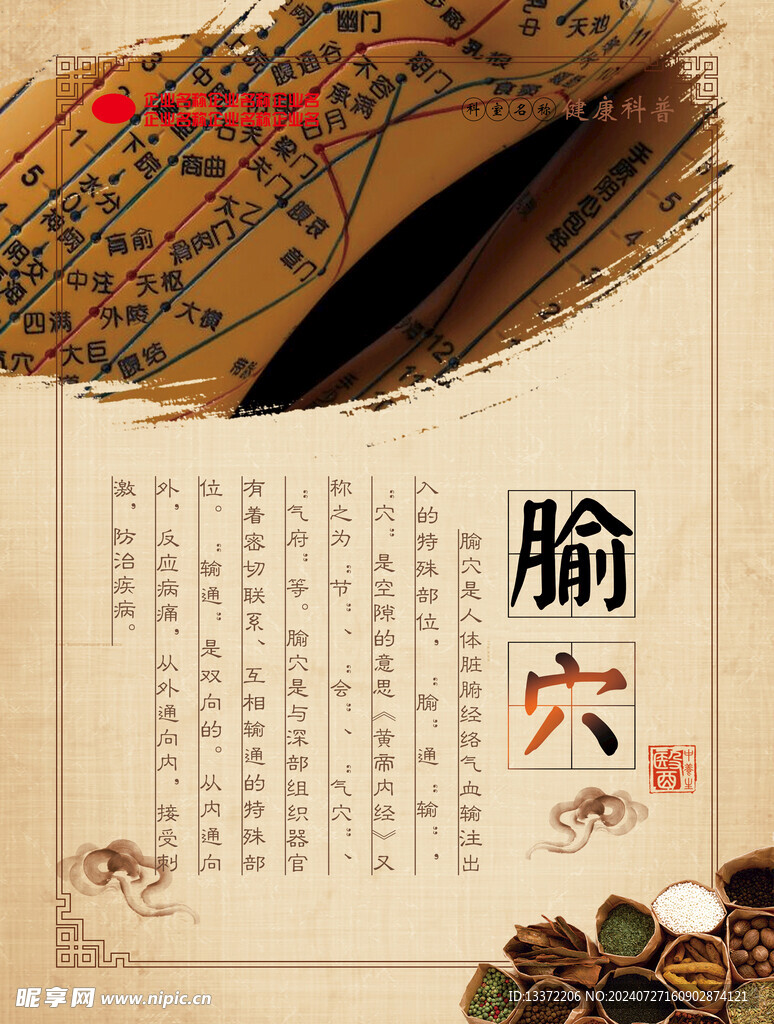 企业名称企业名称企业名
企业名称企业名称企业名
科室名称 健康科普
幽门
步廊
乳中
天池
11
3
中
腹通谷
不容
期门
乳根
食窦
10
承满
1
石关
梁门
日月
手厥阴心包经
5
4
12
5
水分
下脘
商曲
关门
太乙
腹哀
神阙
肓俞
滑肉门
章门
阴交
中注
天枢
四满
外陵
大横
气穴
大巨
腹结
腧穴
腧穴是人体脏腑经络气血输注出
入的特殊部位，“腧”通“输”，
“穴”是空隙的意思《黄帝内经》又
称之为“节”、“会”、“气穴”、
“气府”等。腧穴是与深部组织器官
有着密切联系、互相输通的特殊部
位。“输通”是双向的。从内通向
外，反应病痛，从外通向内，接受刺
激，防治疾病。
中养生
昵享网 www.nipic.cn
ID:13372206 NO:20240727160902874121